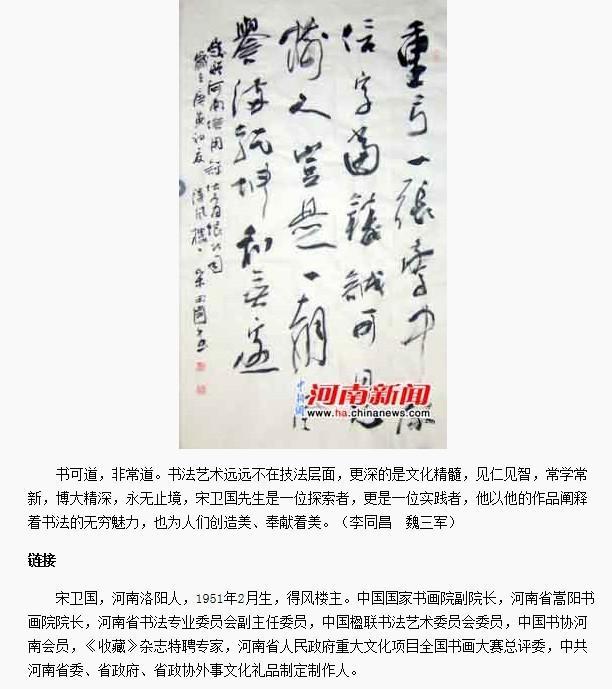 重 一張
信字 誠可
人豈是一朝
譽滿乾坤
河南
歲在庚寅初夏 得風樓 宋
中新網
河南新闻
www.ha.chinanews.com
书可道，非常道。书法艺术远远不在技法层面，更深的是文化精髓，见仁见智，常学常
新，博大精深，永无止境，宋卫国先生是一位探索者，更是一位实践者，他以他的作品阐释
着书法的无穷魅力，也为人们创造美、奉献着美。（李同昌　魏三军）
链接
宋卫国，河南洛阳人，1951年2月生，得风楼主。中国国家书画院副院长，河南省嵩阳书
画院院长，河南省书法专业委员会副主任委员，中国楹联书法艺术委员会委员，中国书协河
南会员，《收藏》杂志特聘专家，河南省人民政府重大文化项目全国书画大赛总评委，中共
河南省委、省政府、省政协外事文化礼品制定制作人。